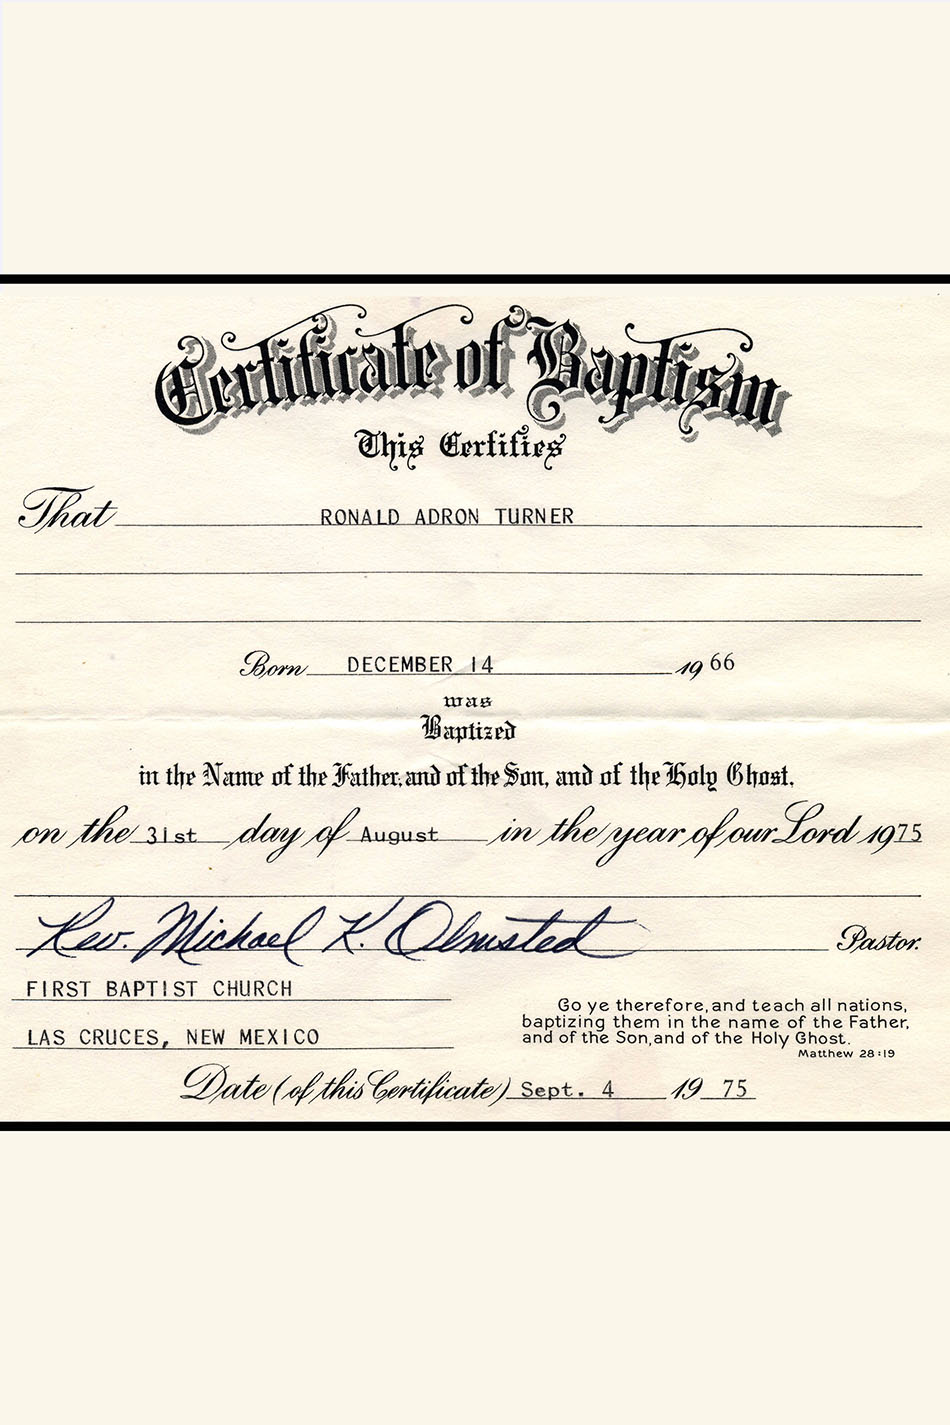 Certificate of Baptism
This Certifies
That RONALD ADRON TURNER
Born DECEMBER 14 1966
was
Baptized
in the Name of the Father, and of the Son, and of the Holy Ghost.
on the 31st day of August in the year of our Lord 1975
Rev. Michael K. Olmsted Pastor.
FIRST BAPTIST CHURCH
LAS CRUCES, NEW MEXICO
Go ye therefore, and teach all nations,
baptizing them in the name of the Father,
and of the Son, and of the Holy Ghost.
Matthew 28:19
Date (of this Certificate) Sept. 4 1975